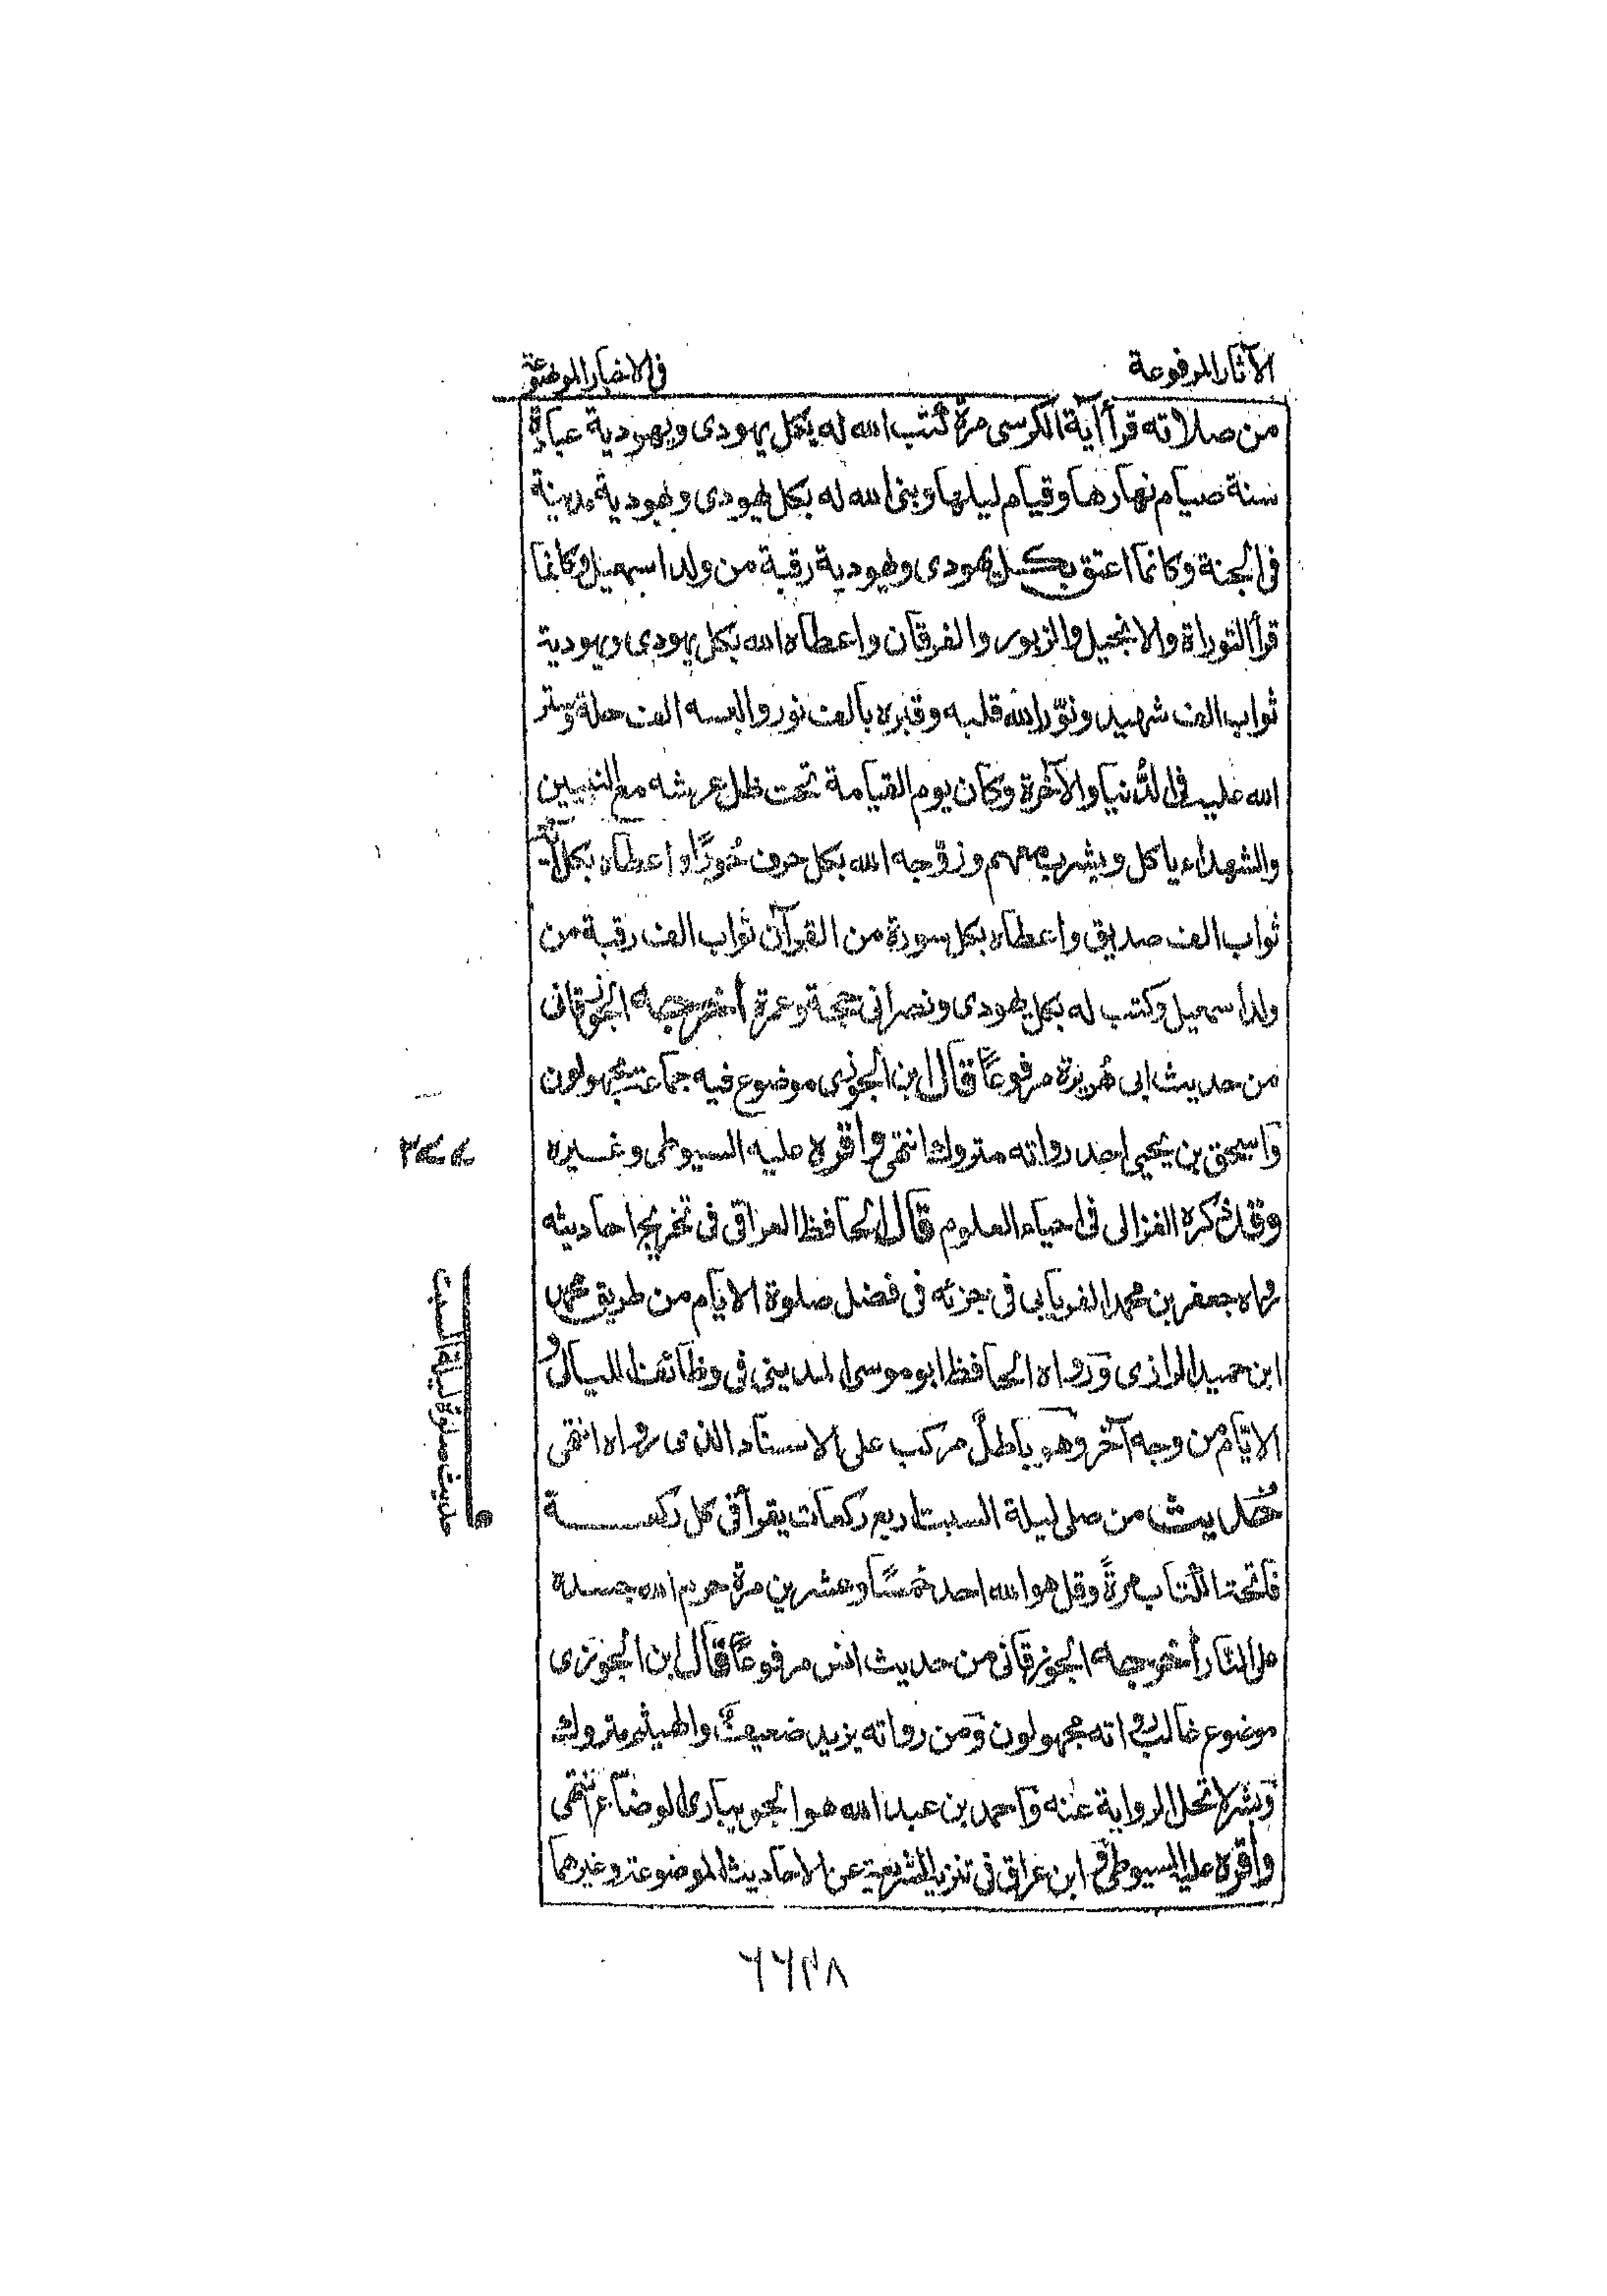 الآثار المرفوعة
في الاخبار الموضوعة
من صلاته قرأ آية الكرسى مرة كتب الله له بكل يهودى ويهودية عبادة
سنة صيام نهارها وقيام ليلها وبنى الله له بكل يهودى ويهودية مدينة
فى الجنة وكانما اعتق بكل يهودى ويهودية رقبة من ولد اسمعيل وكانما
قرأ التوراة والانجيل والزبور والفرقان واعطاه الله بكل يهودى ويهودية
ثواب الف شهيد ونوّر الله قلبه وقبره بالف نور والبسه الف حلة وستر
الله عليه فى الدُّنيا والآخرة وكان يوم القيامة تحت ظل عرشه مع النبيين
والشهداء ياكل ويشرب معهم وزوجه الله بكل حرف حُورًا واعطاه بكل آية
ثواب الف صديق واعطاه بكل سورة من القرآن ثواب الف رقبة من
ولد اسمعيل وكتب له بكل يهودى ونصرانى حجة وعمرة أخرجه الجوزقانى
من حديث ابى هُريرة مرفوعًا قال ابن الجوزى موضوع فيه جماعة مجهولون
وَاسحق بن يحيى احد رواته متروك انتهى واقره عليه السيوطى وغيره
وقد ذكره الغزالى فى احياء العلوم قال الحافظ العراقى فى تخريج احاديثه
رواه جعفر بن محمد الفريابى فى جزئه فى فضل صلوة الايام من طريق محمد
ابن حميد الرازى وَرواه الحافظ ابو موسى المدينى فى وظائف الليالى و
الايّام من وجه آخر وهو باطلٌ مركب على الاسناد الذى رواه انتهى
حُديث من صلى ليلة السبت اربع ركعات يقرأ فى كل ركعة
فاتحة الكتاب مرةً وقل هو الله احد خمسًا وعشرين مرة حرم الله جسده
على النار أخرجه الجوزقانى من حديث انس مرفوعًا قال ابن الجوزى
موضوع غالب رواته مجهولون وَمن رواته يزيد ضعيفٌ والهيثم متروك
وَبشر لا تحل الرواية عنه وَاحمد بن عبد الله هو الجويبارى الوضّاع انتهى
واقره عليه السيوطى و ابن عراق فى تنزيه الشريعة عن الاحاديث الموضوعة وغيرهما
حديث صلوة ليلة السبت